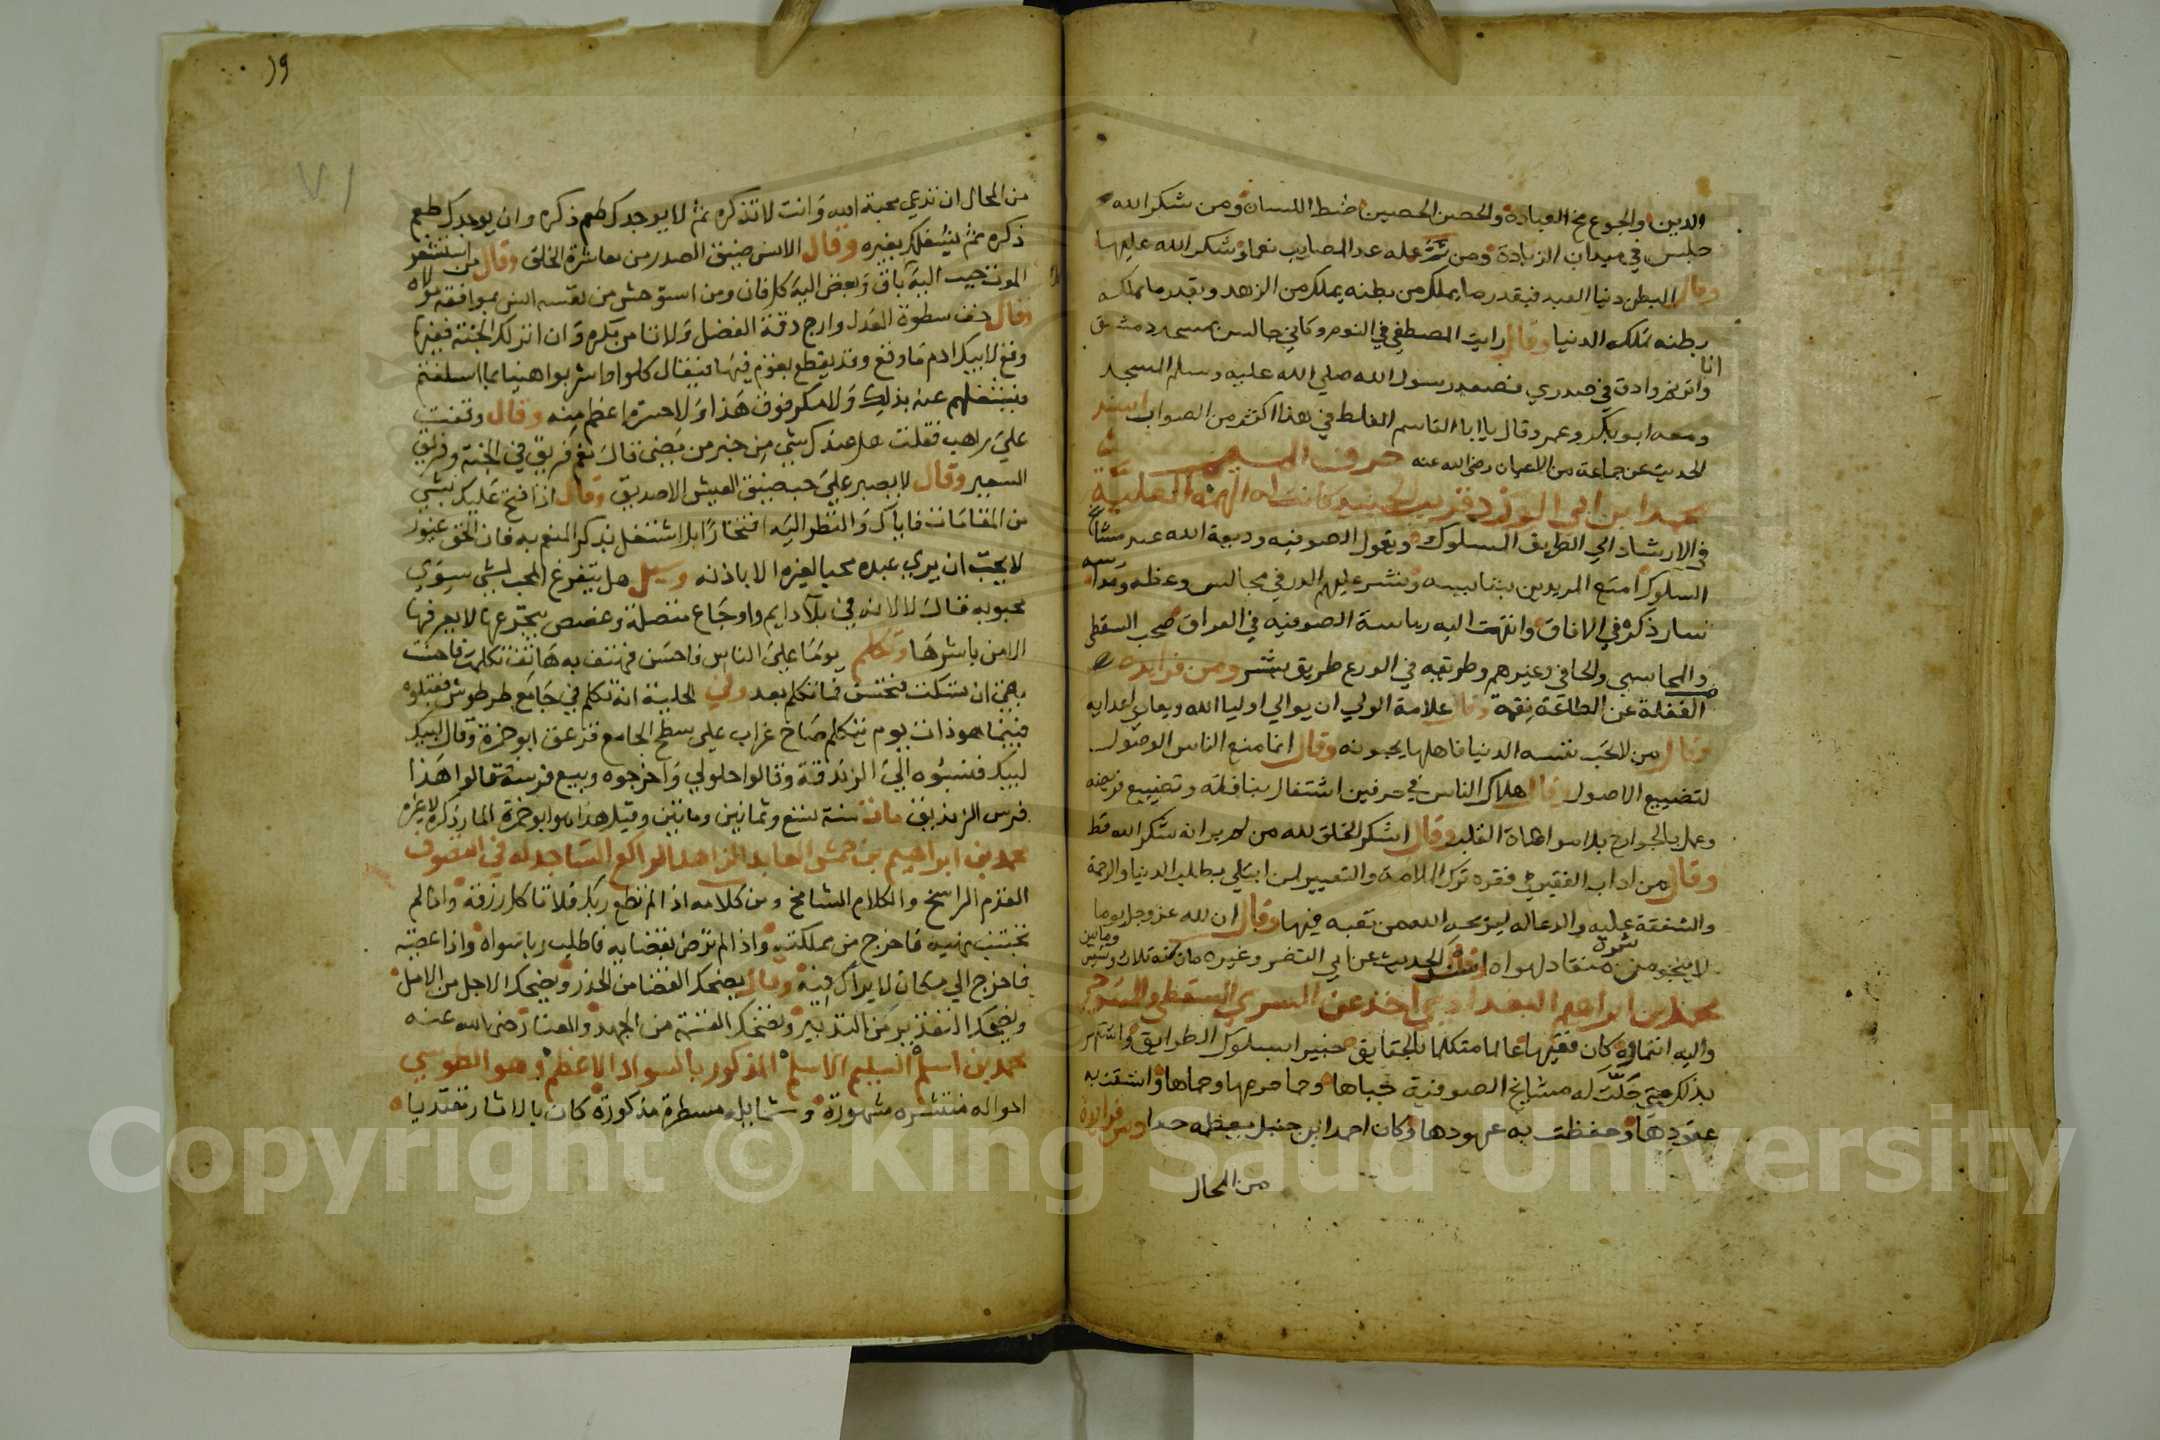 الدين والجوع مخ العبادة والحصن الحصين ضبط اللسان ومن شكر الله
جلس في ميدان الزيادة ومن ثم عله عد المصايب نعما وشكر الله عليها
وقال البطن دنيا العبد فبقدر ما يملك من بطنه يملك من الزهد وبقدر ما تملكه
بطنه تملكه الدنيا وقال رايت المصطفى في النوم وكاني جالس بمسجد دمشق
انا
وادق في صدري فصعد رسول الله صلى الله عليه وسلم المسجد
ومعه ابو بكر وعمر وقال يا ابا القاسم الغلط في هذا اكثر من الصواب اسند
الحديث عن جماعة من الاعيان رضي الله عنه حرف الميم
محمد ابن ابي الورد قريب الجنيد كانت له الهمة العلية
في الارشاد الي الطريق السلوك ويقول الصوفيه وديعة الله عند
السلوك امتع المريدين ونشر عليهم الدر في مجالس وعظه
فسار ذكره في الافاق وانتهت اليه رياسة الصوفيه في العراق صحب السقطي
والمحاسبي والحافي وغيرهم وطريقه في الورع طريق بشر ومن فوايده
الغفلة عن الطاعة نقمة وقال علامة الولي ان يوالي اوليا الله ويعادي اعدايه
وقال من لا يحب نفسه الدنيا فاهلها يحبونه وقال انما منع الناس الوصول
لتضييع الاصول وقال هلاك الناس في حرفين اشتغال بنافلة وتضييع فريضه
وعمل بالجوارح بلا مواطاة القلب وقال اشكر الخلق لله من لم ير انه شكر الله قط
وقال من اداب الفقير في فقره ترك الملامة والتعيير لمن ابتلي بطلب الدنيا والرحمة
والشفقة عليه والدعا له ليريحه الله من تعبه فيها وقال ان لله عز وجل يوما
لا ينجو من شره منقاد لهواه اسند الحديث عن ابي النضر وغيره مات سنة ثلاث وستين
ومايتين
محمد بن ابراهيم البغدادي اخذ عن السري السقطي
واليه انتماوه كان فقيها عالما متكلما بالحقايق خبيرا بسلوك الطرايق واشتهر
بذلك حتي حلت له مشايخ الصوفية حباها وحما حرمها وحماها واتسقت به
عقودها وحفظت به عهودها وكان احمد ابن حنبل يعظمه جدا ومن فوايده
من المحال
19
71
من المحال ان تدعي محبة الله وانت لا تذكره ثم لا يوجدك طعم ذكره وان يوجدك طعم
ذكره ثم يشغلك بغيره وقال الانس ضيق الصدر من معاشرة الخلق وقال من استشعر
الموت حبب اليه كل باق وبغض اليه كل فان ومن استوحش من نفسه انس بموافقة مولاه
وقال خف سطوة العدل وارج دقة الفضل ولا تامن مكره وان انزلك الجنة ففيها
وقع لابيك ادم ما وقع وقد يقطع بقوم فيها فيقال كلوا واشربوا هنيا بما اسلفتم
فيشغلهم عنه بذلك ولا مكر فوق هذا ولا حسرة اعظم منه وقال وقفت
علي راهب فقلت هل عندك شي من خبر من مضى قال نعم فريق في الجنة وفريق
السعير وقال لا يصبر علي حب ضيق العيش الا صديق وقال اذا فتح عليك بشي
من المقامات فاياك والنظر اليه افتخارا بل اشتغل بذكر المنعم به فان الحق غيور
لا يحب ان يري عبده محبا لغيره الا باذنه وسيل هل يتفرغ المحب لشي سوي
محبوبه فقال لا لانه في بلا دايم واوجاع متصلة وغصص يتجرعها لا يعرفها
الا من باشرها وتكلم يوما علي الناس فاحسن فهتف به هاتف تكلمت فاحسنت
بقي ان تسكت فتحسن فما تكلم بعد وفي الحلية انه تكلم في جامع طرطوس فقبلوه
فبينما هو ذات يوم يتكلم صاح غراب علي سطح الجامع فزعق ابو حمزة وقال لبيك
لبيك فنسبوه الي الزندقة وقالوا حلولي واخرجوه وبيع فرسه فقالوا هذا
فرس الزنديق مات سنة تسع وثمانين ومايتين وقيل هذا هو ابو حمزة المار ذكره لا غيره
محمد بن ابراهيم بن حمش العابد الزاهد الراكع الساجد له في التصوف
القدم الراسخ والكلام الشامخ ومن كلامه اذا لم تطع ربك فلا تاكل رزقه واذا لم
تجتنب نهيه فاخرج من مملكته واذا لم ترض بقضايه فاطلب ربا سواه واذا عصيته
فاخرج الي مكان لا يراك فيه وقال يضحك القضا من الحذر ويضحك الاجل من الامل
ويضحك التقدير من التدبير وتضحك القسمة من الجهد والعنا رضي الله عنه
محمد بن اسلم السليم الاسلم المذكور بالسواد الاعظم وهو الطوسي
احواله منتشره مشهورة وشمايله مسطرة مذكورة كان بالاثار مقتديا
Copyright © King Saud University